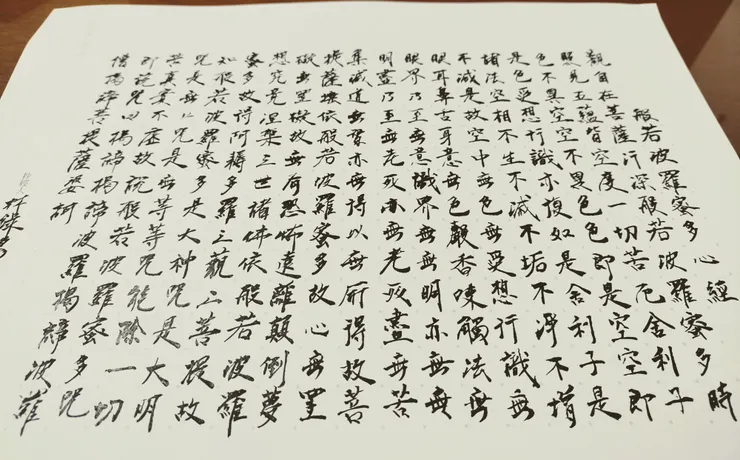 般若波羅蜜多心經
觀自在菩薩行深般若波羅蜜多時
照見五蘊皆空度一切苦厄舍利子
色不異空空不異色色即是空空即
是色受想行識亦復如是舍利子是
諸法空相不生不滅不垢不淨不增
不減是故空中無色無受想行識無
眼耳鼻舌身意無色聲香味觸法無
眼界乃至無意識界無無明亦無無
明盡乃至無老死亦無老死盡無苦
集滅道無智亦無得以無所得故菩
提薩埵依般若波羅蜜多故心無罣
礙無罣礙故無有恐怖遠離顛倒夢
想究竟涅槃三世諸佛依般若波羅
蜜多故得阿耨多羅三藐三菩提故
知般若波羅蜜多是大神咒是大明
咒是無上咒是無等等咒能除一切
苦真實不虛故說般若波羅蜜多咒
即說咒曰揭諦揭諦波羅揭諦波羅
僧揭諦菩提薩婆訶